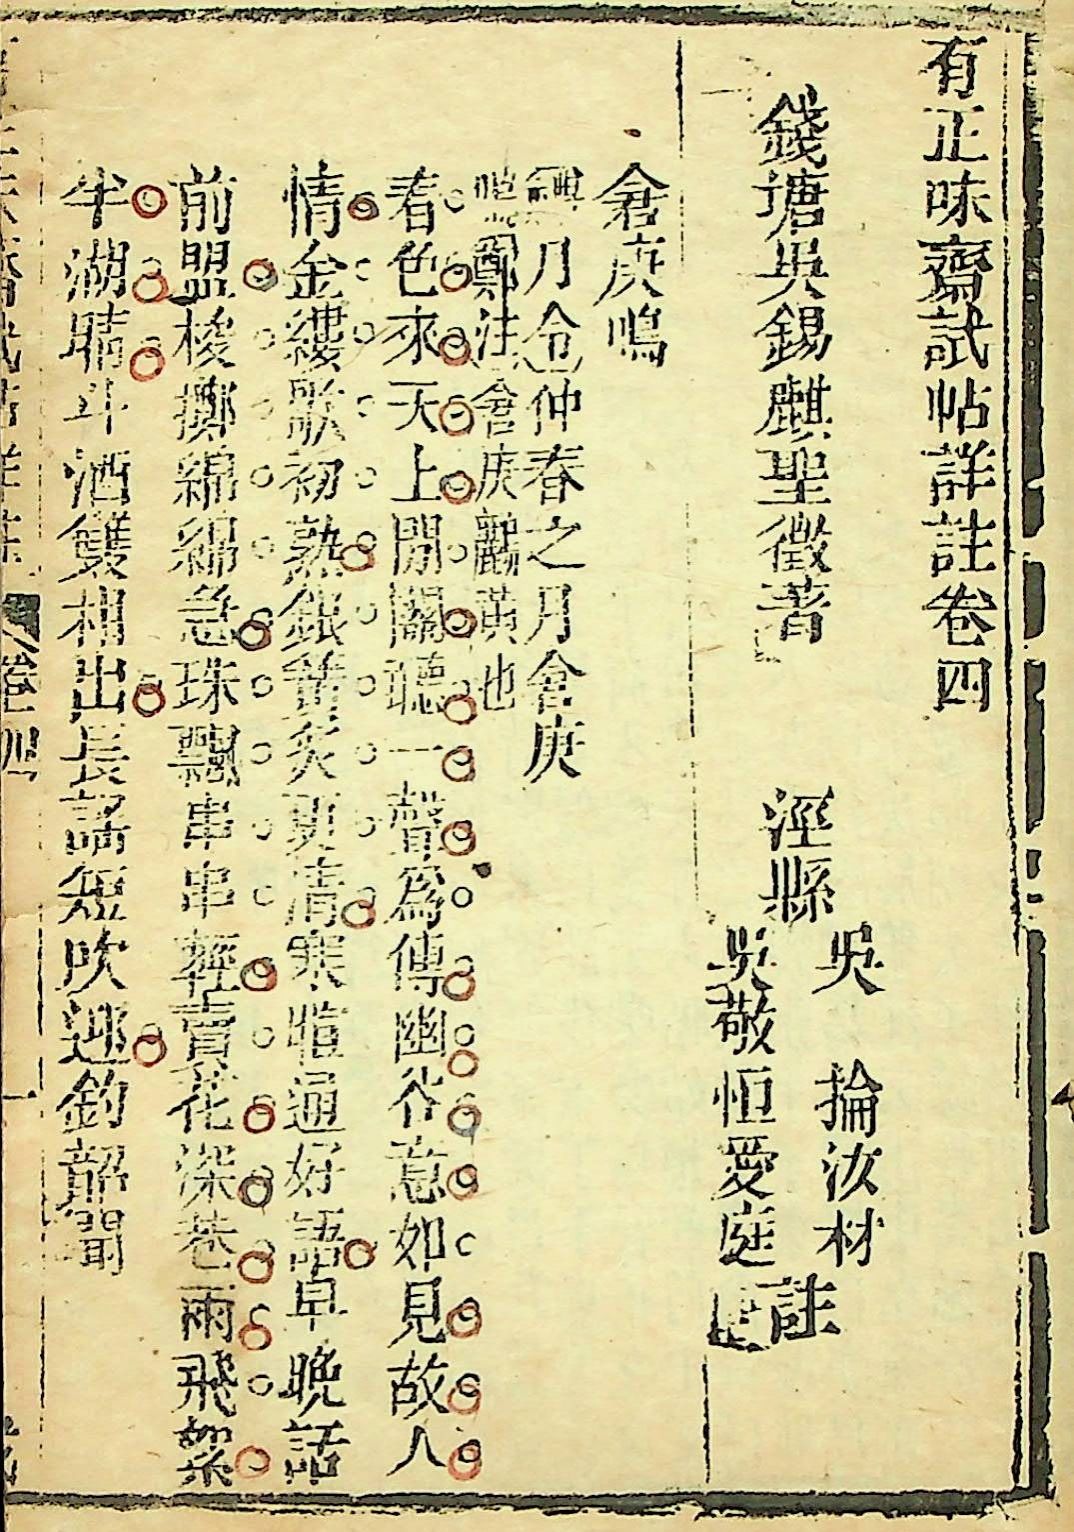 有正味齋試帖詳註卷四
錢塘吳錫麒聖徵著
涇縣
吳掄汝材
吳敬恒愛庭
註
倉庚鳴
禮月令仲春之月倉庚
鳴鄭注倉庚鸝黃也
春色來天上間關聽一聲為傳幽谷意如見故人
情金縷歌初熟銀簧炙更清寒暄通好語早晚話
前盟梭擲綿綿急珠飄串串輕賣花深巷雨飛絮
半湖晴斗酒雙柑出長謠短吹迎鈞韶聞
卷四
一